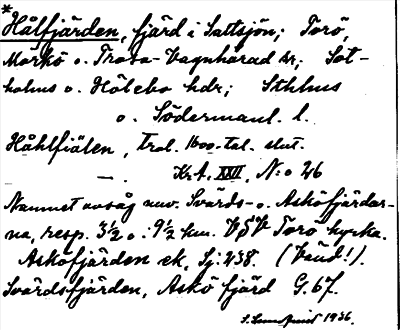 *
Hålfjärden, fjärd i Saltsjön; Torö,
Morkö o. Trosa-Vagnhärad snr; Sot-
holms o. Hölebo hdr; Sthlms
o. Södermanl. l.
Håhlfiälen, trol. 1600-tal. slut.
— . Krt. XXII, N:o 26
Namnet avsåg nuv. Svärds- o. Asköfjärdar-
na, resp. 3½ o. 9½ km. VSV Torö kyrka.
Asköfjärden ek. Sj: 438. (Vänd!).
Svärdsfjärden, Askö fjärd G. 67.
1936.